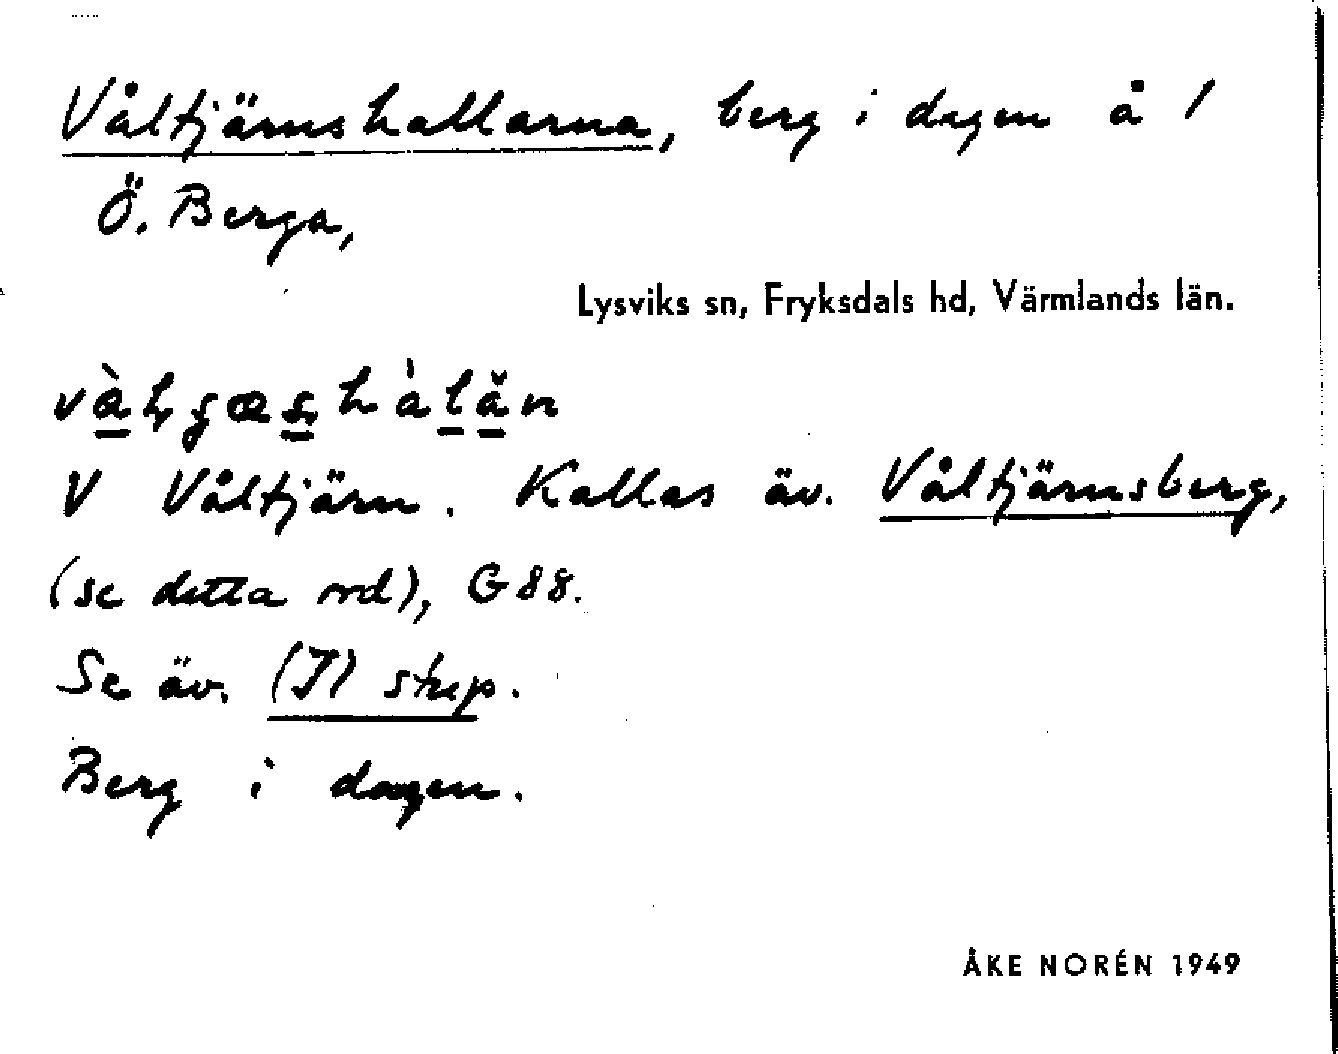 Våltjärnshallarna, berg i dagen å 1
Ö. Berga,
Lysviks sn, Fryksdals hd, Värmlands län.
V Våltjärn. Kallas äv. Våltjärnsberg,
(se detta ord), G 88.
Se äv. stup.
Berg i dagen.
ÅKE NORÉN 1949